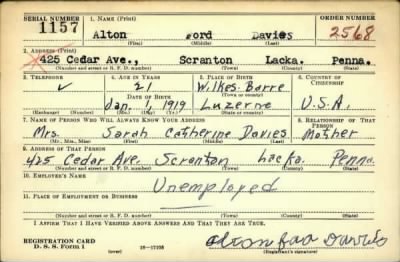 SERIAL NUMBER 1. NAME (Print) ORDER NUMBER
1157 Alton Ford Davies 2568
(First) (Middle) (Last)
2. ADDRESS (Print)
425 Cedar Ave., Scranton Lacka. Penna.
(Number and street or R. F. D. number) (Town) (County) (State)
3. TELEPHONE 4. AGE IN YEARS 5. PLACE OF BIRTH 6. COUNTRY OF CITIZENSHIP
21 Wilkes-Barre
DATE OF BIRTH (Town or county)
Jan. 1, 1919 Luzerne U.S.A.
(Exchange) (Number) (Mo.) (Day) (Yr.) (State or country)
7. NAME OF PERSON WHO WILL ALWAYS KNOW YOUR ADDRESS 8. RELATIONSHIP OF THAT PERSON
Mrs. Sarah Catherine Davies Mother
(Mr., Mrs., Miss) (First) (Middle) (Last)
9. ADDRESS OF THAT PERSON
425 Cedar Ave. Scranton Lacka. Penna.
(Number and street or R. F. D. number) (Town) (County) (State)
10. EMPLOYER'S NAME
Unemployed
11. PLACE OF EMPLOYMENT OR BUSINESS
(Number and street or R. F. D. number) (Town) (County) (State)
I AFFIRM THAT I HAVE VERIFIED ABOVE ANSWERS AND THAT THEY ARE TRUE.
REGISTRATION CARD
D. S. S. Form 1 (over) 16-17105 (Registrant's signature)